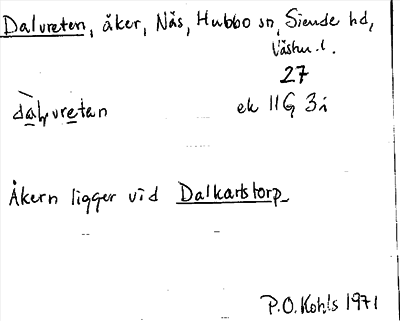 Dalvreten, åker, Näs, Hubbo sn, Siende hd,
Västm. l.
27
dàl,vretan ek 11G 3i
Åkern ligger vid Dalkarlstorp
P.O. Kohls 1971